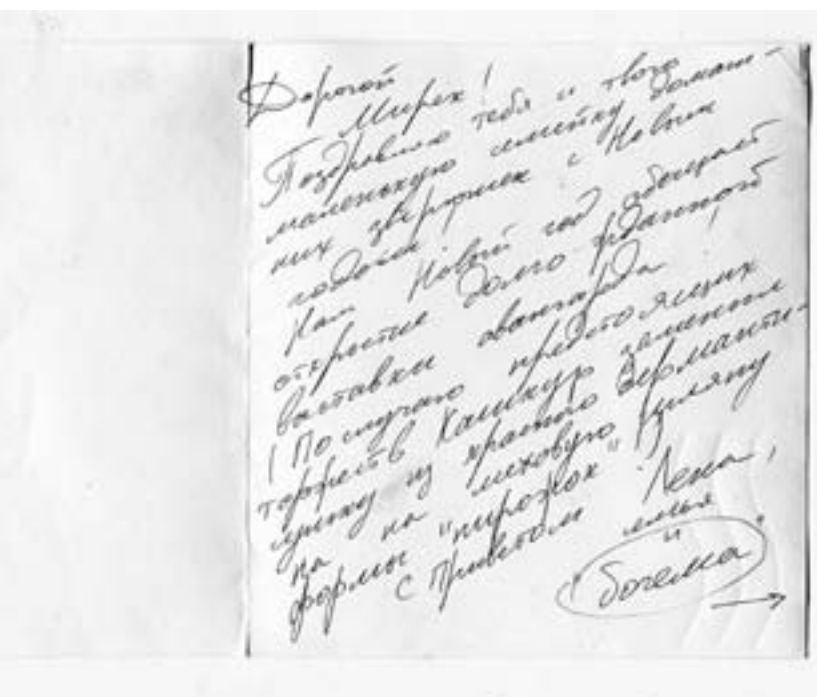 Дорогой
Мирек!
Поздравляю тебя и твою
маленькую семейку домаш-
них зверюшек с Новым
годом!
Нам Новый год обещает
открытие долго жданной
выставки авангарда!
(По случаю предстоящих
торжеств Кашкур заменил
из красного Дерматти-
на на меховую шляпу
формы "пирожок")
С приветом Лена,
"богема"